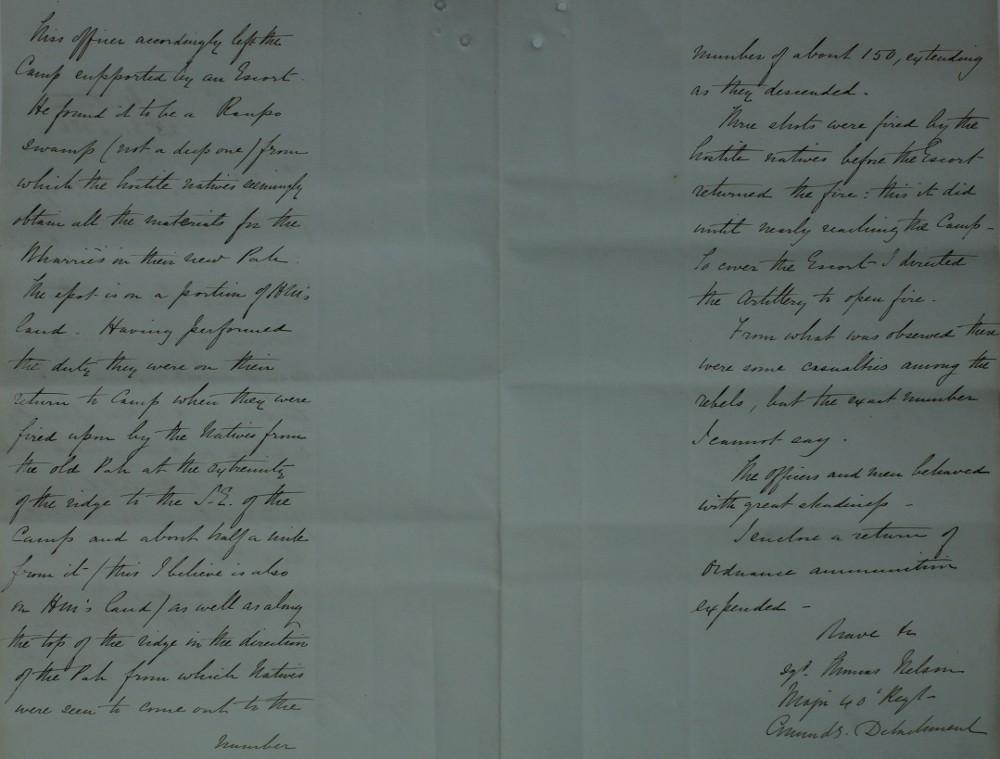 This officer accordingly left the
Camp supported by an Escort.
He found it to be a Raupo
swamp (not a deep one) from
which the hostile natives seemingly
obtain all the materials for the
Wharries on their new Pah.
The spot is on a portion of
land. Having performed
the duty they were on their
return to Camp when they were
fired upon by the Natives from
the old Pah at the extremity
of the ridge to the S.E. of the
Camp and about half a mile
from it (this I believe is also
on land) as well as along
the top of the ridge in the direction
of the Pah from which Natives
were seen to come out to the
number
number of about 150, extending
as they descended.
Three shots were fired by the
hostile natives before the Escort
returned the fire: this it did
until nearly reaching the Camp -
To cover the Escort I directed
the Artillery to open fire.
From what was observed there
were some casualties among the
rebels, but the exact number
I cannot say.
The officers and men behaved
with great steadiness -
I enclose a return of
Ordnance ammunition
expended -
I have &c
sgd. Thomas Nelson
Major 40 Regt
Commdg. Detachment